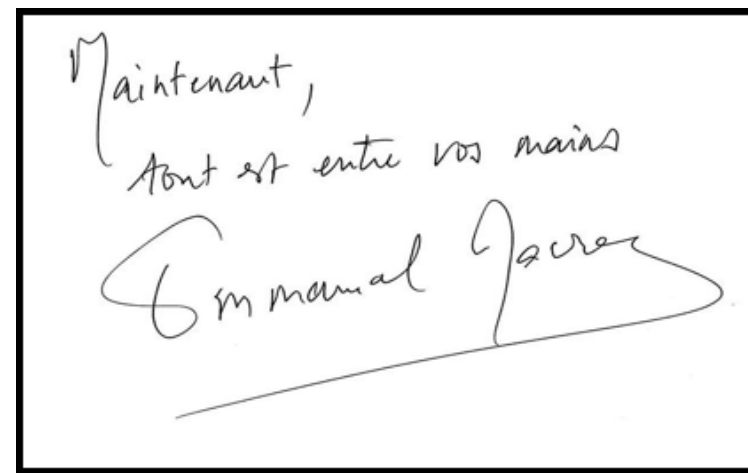 Maintenant,
tout est entre vos mains
Emmanuel Macron